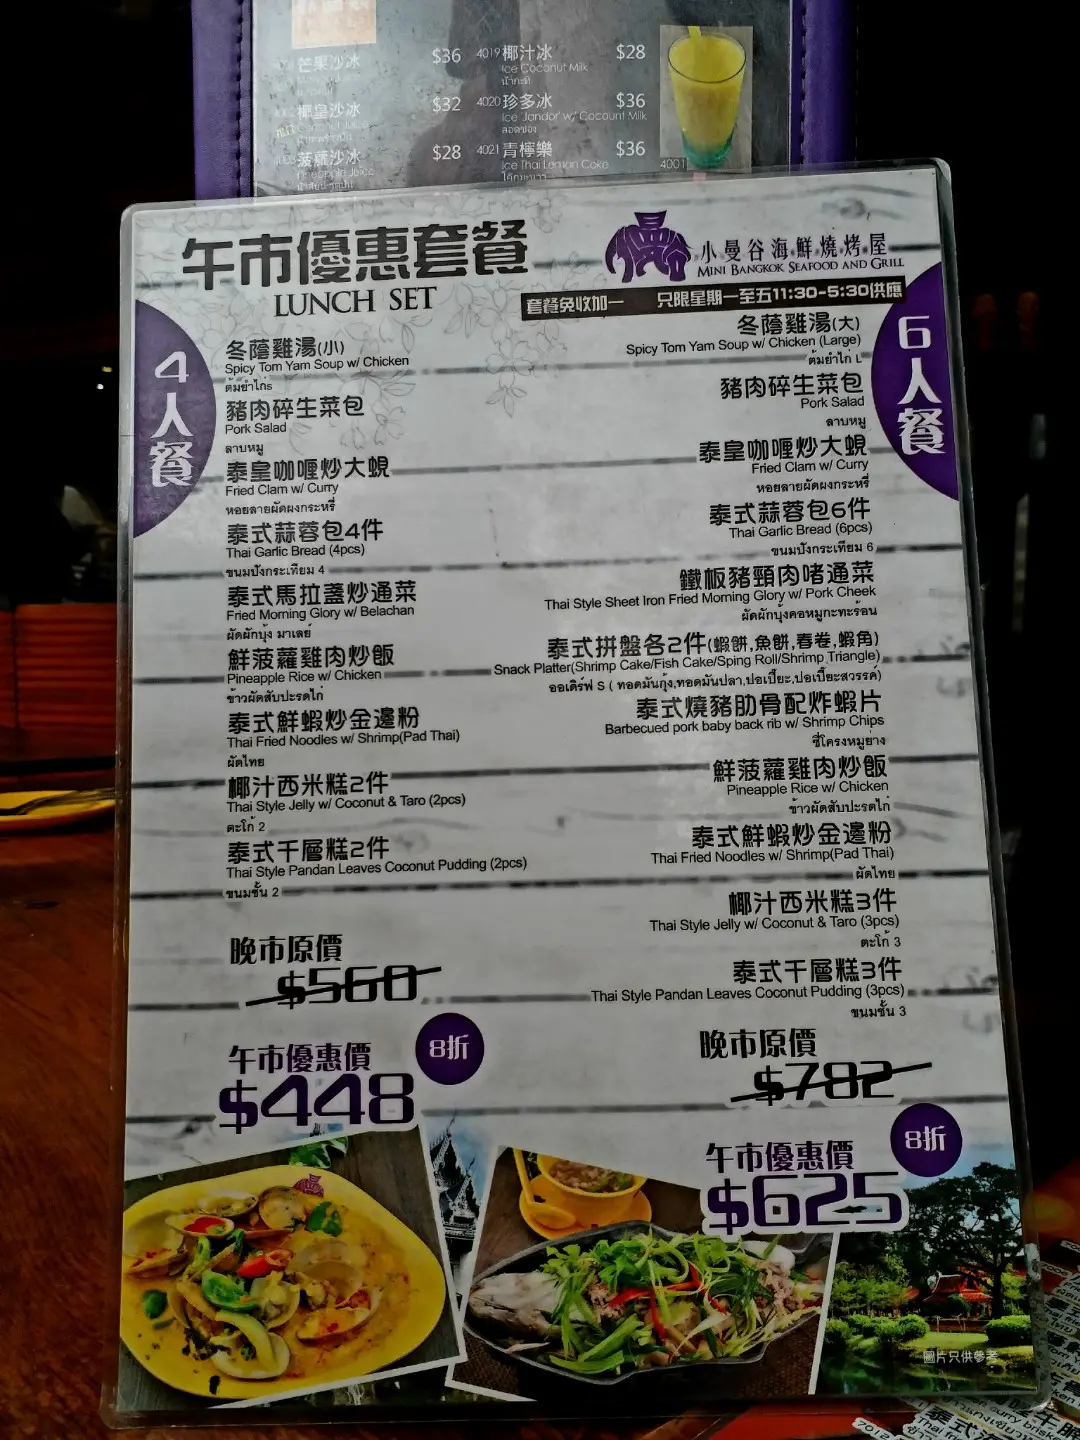 芒果沙冰 $36
椰皇沙冰 $32
菠蘿沙冰 $28
Pineapple Juice
4019 椰汁冰 $28
Ice Coconut Milk
4020 珍多冰 $36
Ice 'Jandor' w/ Cocount Milk
ลอดช่อง
4021 青檸樂 $36
Ice Thai Lemon Coke
4001
午市優惠套餐
LUNCH SET
小曼谷海鮮燒烤屋
MINI BANGKOK SEAFOOD AND GRILL
套餐免收加一 只限星期一至五11:30-5:30供應
4人餐
冬蔭雞湯(小)
Spicy Tom Yam Soup w/ Chicken
ต้มยำไก่s
豬肉碎生菜包
Pork Salad
ลาบหมู
泰皇咖喱炒大蜆
Fried Clam w/ Curry
หอยลายผัดผงกระหรี่
泰式蒜蓉包4件
Thai Garlic Bread (4pcs)
ขนมปังกระเทียม 4
泰式馬拉盞炒通菜
Fried Morning Glory w/ Belachan
ผัดผักบุ้ง มาเลย์
鮮菠蘿雞肉炒飯
Pineapple Rice w/ Chicken
ข้าวผัดสับปะรดไก่
泰式鮮蝦炒金邊粉
Thai Fried Noodles w/ Shrimp(Pad Thai)
ผัดไทย
椰汁西米糕2件
Thai Style Jelly w/ Coconut & Taro (2pcs)
ตะโก้ 2
泰式千層糕2件
Thai Style Pandan Leaves Coconut Pudding (2pcs)
ขนมชั้น 2
晚市原價
$560
午市優惠價
8折
$448
6人餐
冬蔭雞湯(大)
Spicy Tom Yam Soup w/ Chicken (Large)
ต้มยำไก่ L
豬肉碎生菜包
Pork Salad
ลาบหมู
泰皇咖喱炒大蜆
Fried Clam w/ Curry
หอยลายผัดผงกระหรี่
泰式蒜蓉包6件
Thai Garlic Bread (6pcs)
ขนมปังกระเทียม 6
鐵板豬頸肉啫通菜
Thai Style Sheet Iron Fried Morning Glory w/ Pork Cheek
ผัดผักบุ้งคอหมูกะทะร้อน
泰式拼盤各2件(蝦餅,魚餅,春卷,蝦角)
Snack Platter(Shrimp Cake/Fish Cake/Sping Roll/Shrimp Triangle)
ออเดิร์ฟ S ( ทอดมันกุ้ง,ทอดมันปลา,ปอเปี๊ยะ,ปอเปี๊ยะสวรรค์)
泰式燒豬肋骨配炸蝦片
Barbecued pork baby back rib w/ Shrimp Chips
ซี่โครงหมูย่าง
鮮菠蘿雞肉炒飯
Pineapple Rice w/ Chicken
ข้าวผัดสับปะรดไก่
泰式鮮蝦炒金邊粉
Thai Fried Noodles w/ Shrimp(Pad Thai)
ผัดไทย
椰汁西米糕3件
Thai Style Jelly w/ Coconut & Taro (3pcs)
ตะโก้ 3
泰式千層糕3件
Thai Style Pandan Leaves Coconut Pudding (3pcs)
ขนมชั้น 3
晚市原價
$782
午市優惠價
8折
$625
圖片只供參考
7012